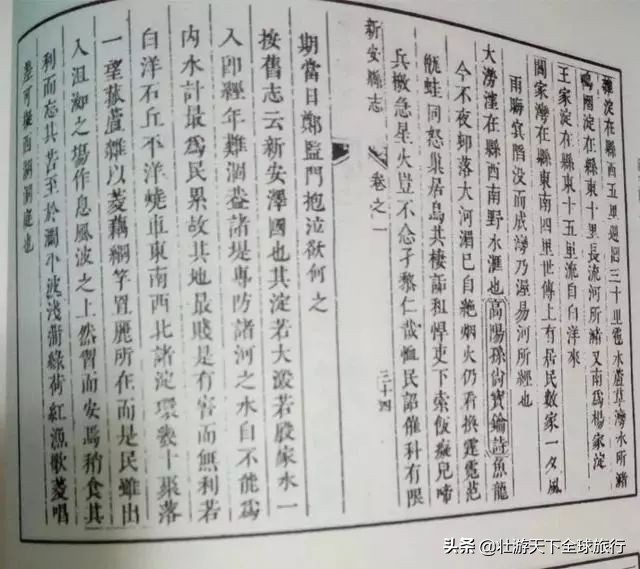 淀在縣西五里週迴三十里水蘆草澇水所
鴨圈淀在縣東十里長流河所瀦又南為楊家淀
王家淀在縣東十五里流自白洋來
閻家灣在縣東南四里世傳上有居民數家一夕風
雨晦冥陷没而成灣乃易河所經也
大澇淀在縣西南野水滙也高陽孫尚寶鑰詩魚龍
今不夜却落大河湄已自絶烟火仍看換霆霓
蛙同怒巢居鳥共棲租悍吏下索飯癡兒啼
兵檄急星火豈不念孑黎仁哉恤民詔催科有限
新安縣志
卷之一
三十四
期當日鄭監門抱泣欲何之
按舊志云新安澤國也其淀若大澱若殷家水一
入即經年難涸盖諸堤專防諸河之水自不能為
内水計最為民累故其地最賤是有害而無利若
白洋石丘不洋燒車東南西北諸淀環數十聚落
一望菰蘆雜以菱藕網罝所在而是民雖出
入沮洳之場作息風波之上然習而安焉稍食其
利而忘其苦至於瀾小波淺綠荷紅漁歌菱唱
是可擬西湖洞庭也
头条 @壮游天下全球旅行